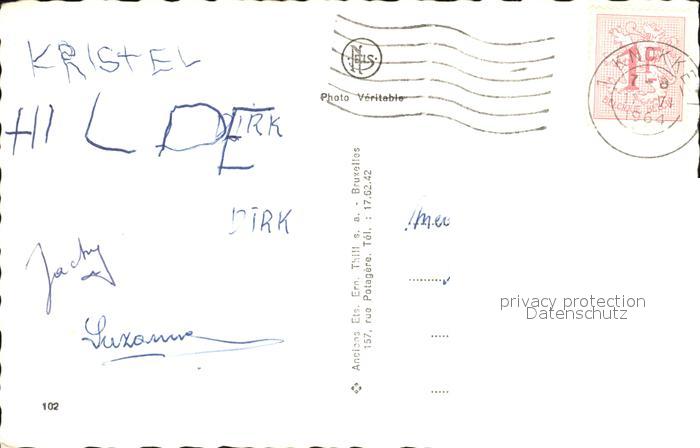 KRISTEL
HILDE
DIRK
DIRK
Jacky
Suzanna
102
NELS
Photo Véritable
Anciens Ets. Ern. Thill s. a. - Bruxelles
157, rue Potagère. Tél. : 17.62.42
1F
KNOKKE
1964
privacy protection
Datenschutz